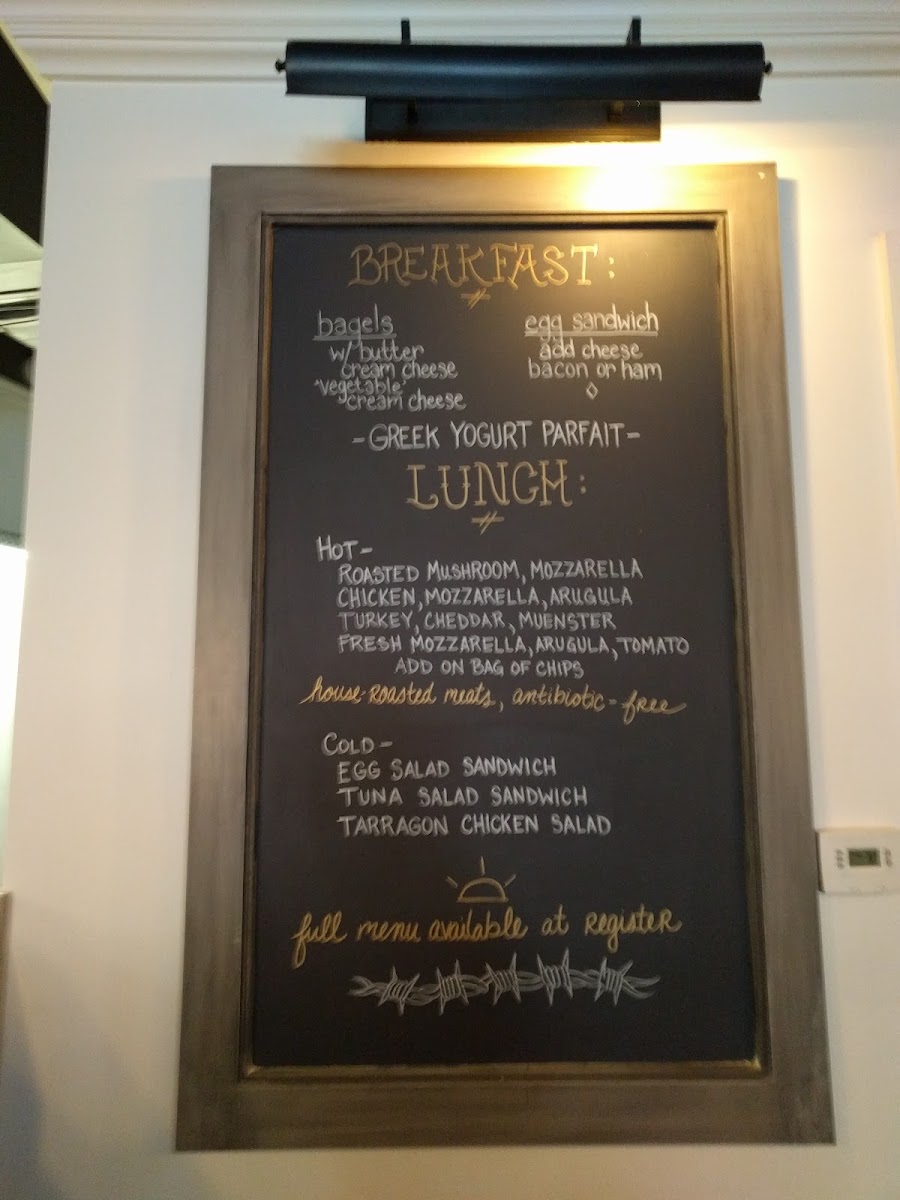 BREAKFAST:
bagels
w/ butter
cream cheese
"vegetable"
cream cheese
egg sandwich
add cheese
bacon or ham
-GREEK YOGURT PARFAIT-
LUNCH:
HOT-
ROASTED MUSHROOM, MOZZARELLA
CHICKEN, MOZZARELLA, ARUGULA
TURKEY, CHEDDAR, MUENSTER
FRESH MOZZARELLA, ARUGULA, TOMATO
ADD ON BAG OF CHIPS
house-roasted meats, antibiotic-free
COLD-
EGG SALAD SANDWICH
TUNA SALAD SANDWICH
TARRAGON CHICKEN SALAD
full menu available at register